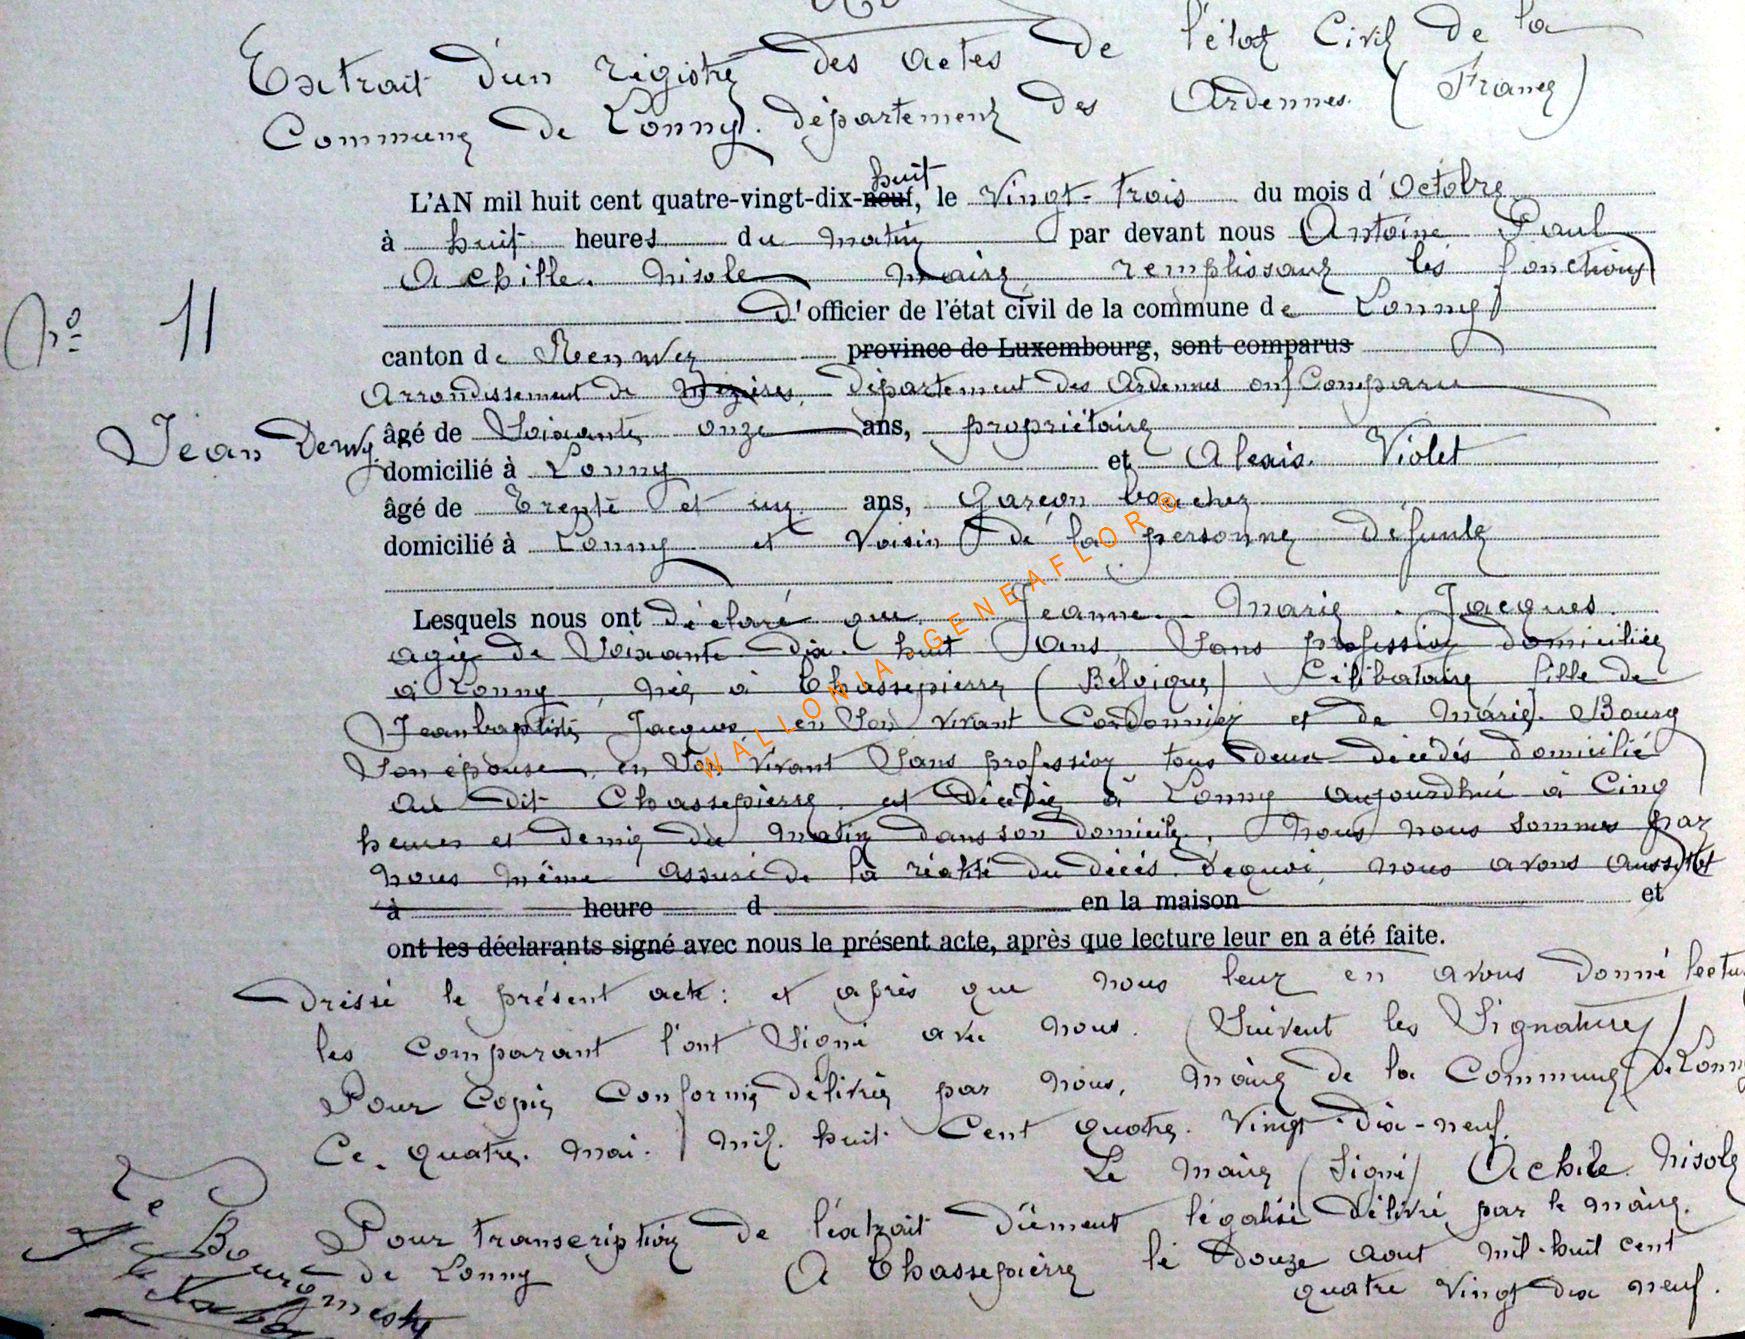 Extrait d'un registre des actes de l'état Civil de la
Commune de Lonny. département des Ardennes. (France)
huit
L'AN mil huit cent quatre-vingt-dix-neuf, le Vingt-trois du mois d'Octobre
à huit heures du matin par devant nous Antoine Paul
Achille. Nisole Maire remplissant les fonctions
d'officier de l'état civil de la commune de Lonny
N° 11
canton de Renwez province de Luxembourg, sont comparus
Arrondissement de Mézières, département des Ardennes ont Comparu
Jean Deruy
âgé de Soixante onze ans, propriétaire
domicilié à Lonny et Alexis. Violet
âgé de Trente et un ans, Garçon boucher
domicilié à Lonny et Voisin de la personne défunte
WALLONIA GENEAFLOR ®
Lesquels nous ont déclaré que Jeanne-Marie. Jacques.
agée de Soixante dix. huit ans, Sans profession domiciliée
à Lonny, née à Chassepierre (Belgique) Célibataire fille de
Jeanbaptiste Jacques en Son vivant Cordonnier et de Marie. Bourg
Son épouse, en Son vivant Sans profession tous deux décédés domicilié
au dit Chassepierre. est décédée à Lonny aujourdhui à Cinq
heures et demie du matin dans son domicile. Nous nous sommes par
nous même assuré de la réalité du décès. De quoi, nous avons aussitôt
à heure d en la maison et
ont les déclarants signé avec nous le présent acte, après que lecture leur en a été faite.
dressé le présent acte: et après que nous leur en avons donné lectu
les Comparant l'ont Signé avec nous. (Suivent les Signatures)
Pour Copie Conforme délivrée par nous, Maire de la Commune de Lonny
Ce. quatre. mai. mil. huit Cent quatre. Vingt-dix-neuf.
Le Maire (Signé) Achile. Nisole
Pour transcription de l'extrait dûment légalisé délivré par le Maire.
de Lonny A Chassepierre le Douze aout mil-huit cent
quatre Vingt dix neuf.
Le
Bourgmestre